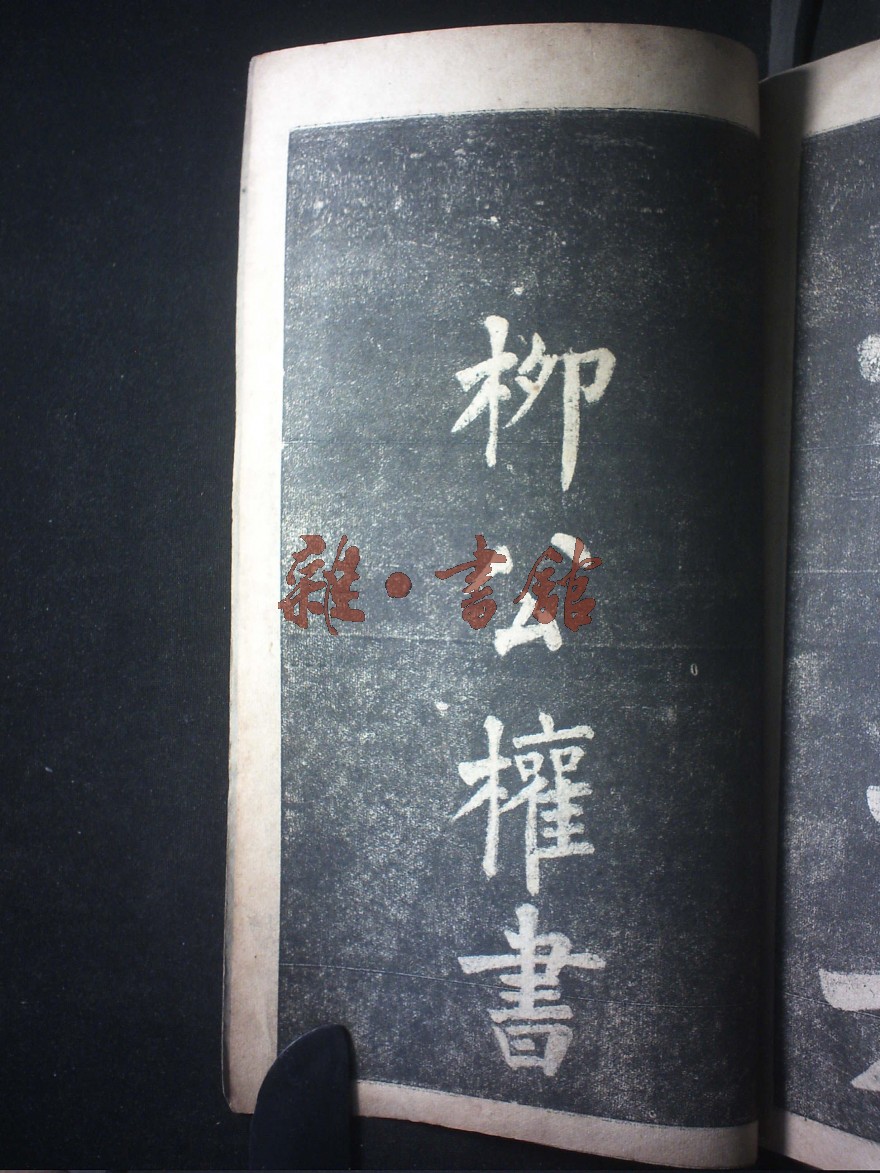 柳公權書
雜·書館